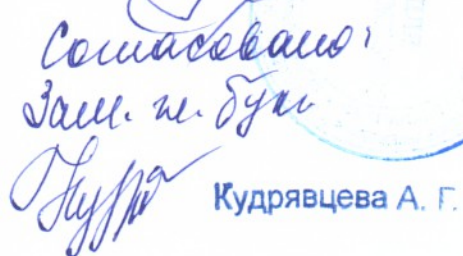 Согласовано:
Зам. гл. бух.
Кудрявцева А. Г.